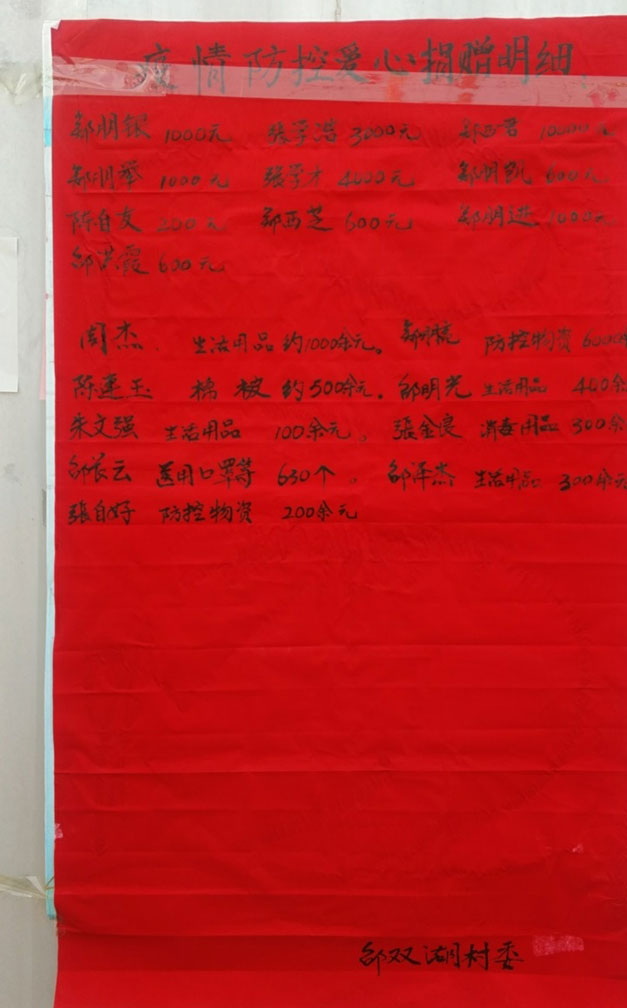 疫情防控爱心捐赠明细
邹朋银 1000元 張学浩 3000元 邹西君 10000元
邹明举 1000元 張学才 4000元 邹明凯 600元
陈自友 200元 邹西芝 600元 邹朋进 1000元
邹洪霞 600元
周杰 生活用品 约1000余元。 邹明 防控物资 6000
陈连玉 棉被 约500余元. 邹明光 生活用品 400余
朱文强 生活用品 100余元。 張金良 消毒用品 300余
邹长云 医用口罩等 630个。 邹泽杰 生活用品 300余元
張自好 防控物资 200余元
邹双湖村委